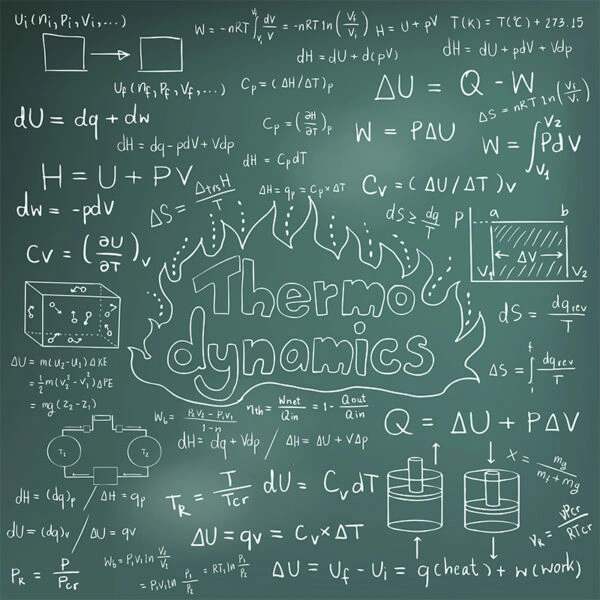 Ui(ni, Pi, Vi, ...)
Uf(nf, Pf, Vf, ...)
W = -nRT ∫ dv/V = -nRT ln(Vi/Vi)
H = U + pV
T(K) = T(℃) + 273.15
dH = dU + d(pV)
dH = dU + pdV + Vdp
Cp = (ΔH/ΔT)p
ΔU = Q - W
ΔS = nRT ln(Vi/Vi)
dU = dq + dw
dH = dq - pdV + Vdp
Cp = (∂H/∂T)p
W = PΔU
W = ∫V1 V2 PdV
dH = CpdT
H = U + PV
ΔS = ΔtrsH/T
ΔH = qp = Cp×ΔT
Cv = (ΔU/ΔT)v
dw = -pdV
dS ≥ dq/T
P a b
ΔV
V1 V2
Cv = (∂U/∂T)v
Thermo
dynamics
dS = dqrev/T
ΔS = ∫i f dqrev/T
ΔU = m(u2-u1)ΔKE
= 1/2m(V2²-V1²)ΔPE
= mg(Z2-Z1)
T1 T2
Wb = P2V2-P1V1/1-n
nth = Wnet/Qin = 1 - Qout/Qin
dH = dq + Vdp / ΔH = ΔU + VΔp
Q = ΔU + PΔV
X = mg/mf+mg
dH = (dq)p / ΔH = qp
TR = T/Tcr
dU = CvdT
dU = (dq)v / ΔU = qv
ΔU = qv = Cv×ΔT
VR = VPcr/RTcr
PR = P/Pcr
Wb = P1V1 ln V2/V1
= P1V1 ln P1/P2
= RT1 ln P1/P2
ΔU = Uf - Ui = q(heat) + w(work)